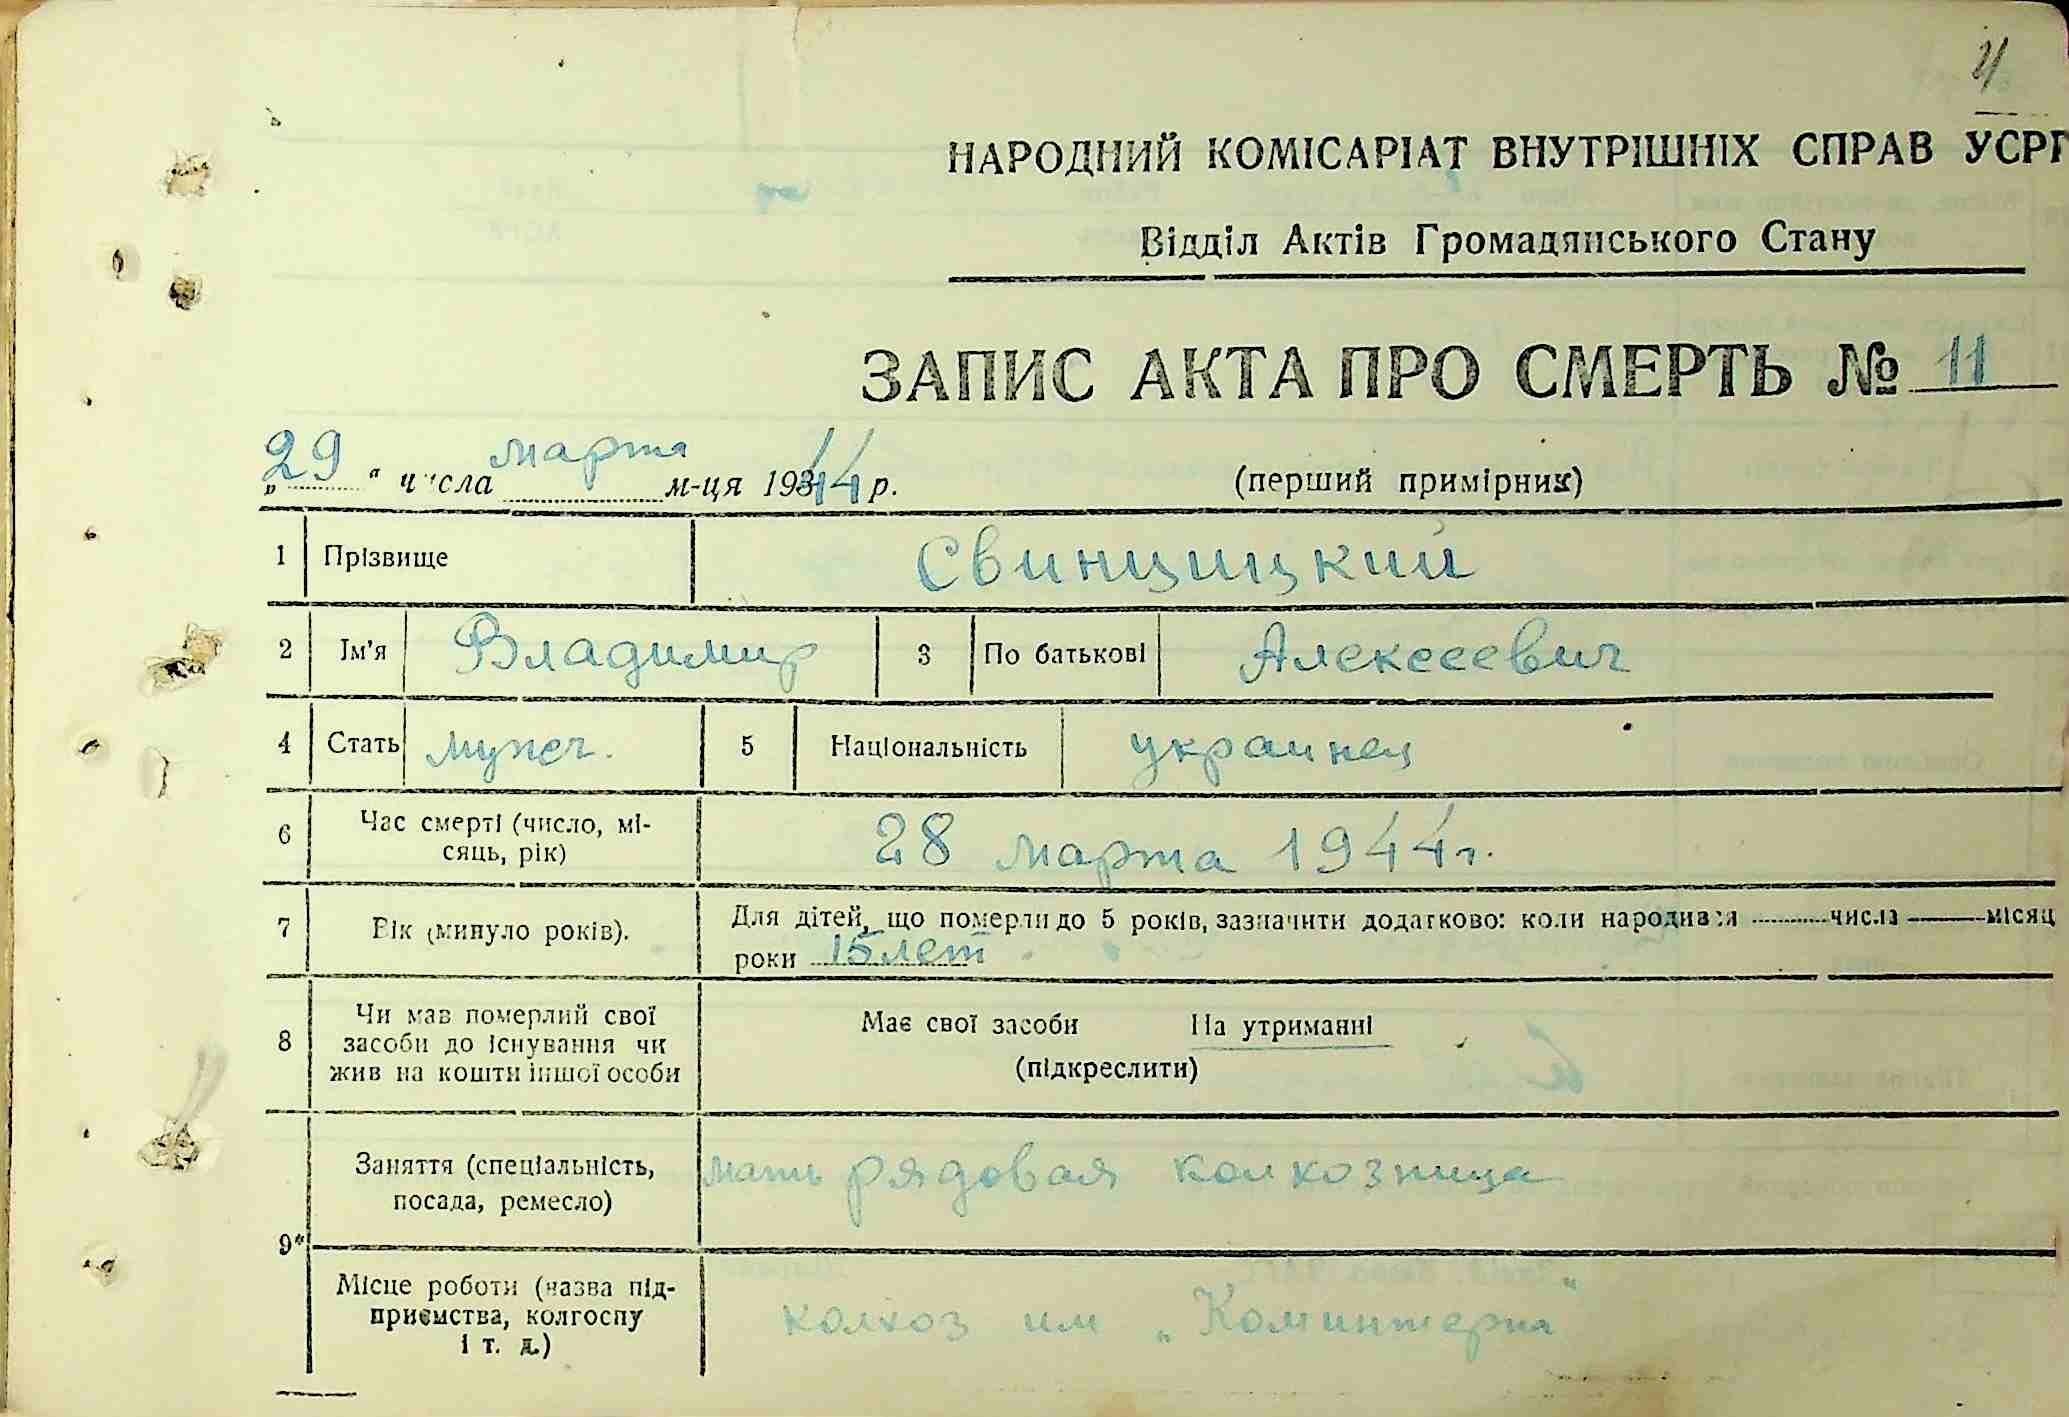 4
НАРОДНИЙ КОМІСАРІАТ ВНУТРІШНІХ СПРАВ УСРР
Відділ Актів Громадянського Стану
ЗАПИС АКТА ПРО СМЕРТЬ № 11
„29“ числа марта м-ця 1944 р. (перший примірник)
1 Прізвище Свинцицкий
2 Ім’я Владимир 3 По батькові Алексеевич
4 Стать мужсч. 5 Національність украинец
6 Час смерті (число, мі-
сяць, рік) 28 марта 1944 г.
7 Вік (минуло років). Для дітей, що померли до 5 років, зазначити додатково: коли народився числа місяц
роки 15 лет
8 Чи мав померлий свої
засоби до існування чи
жив на кошти іншої особи
Має свої засоби На утриманні
(підкреслити)
9* Заняття (спеціальність,
посада, ремесло) мать рядовая колхозница
Місце роботи (назва під-
приємства, колгоспу
і т. д.) колхоз им „Коминтерна“